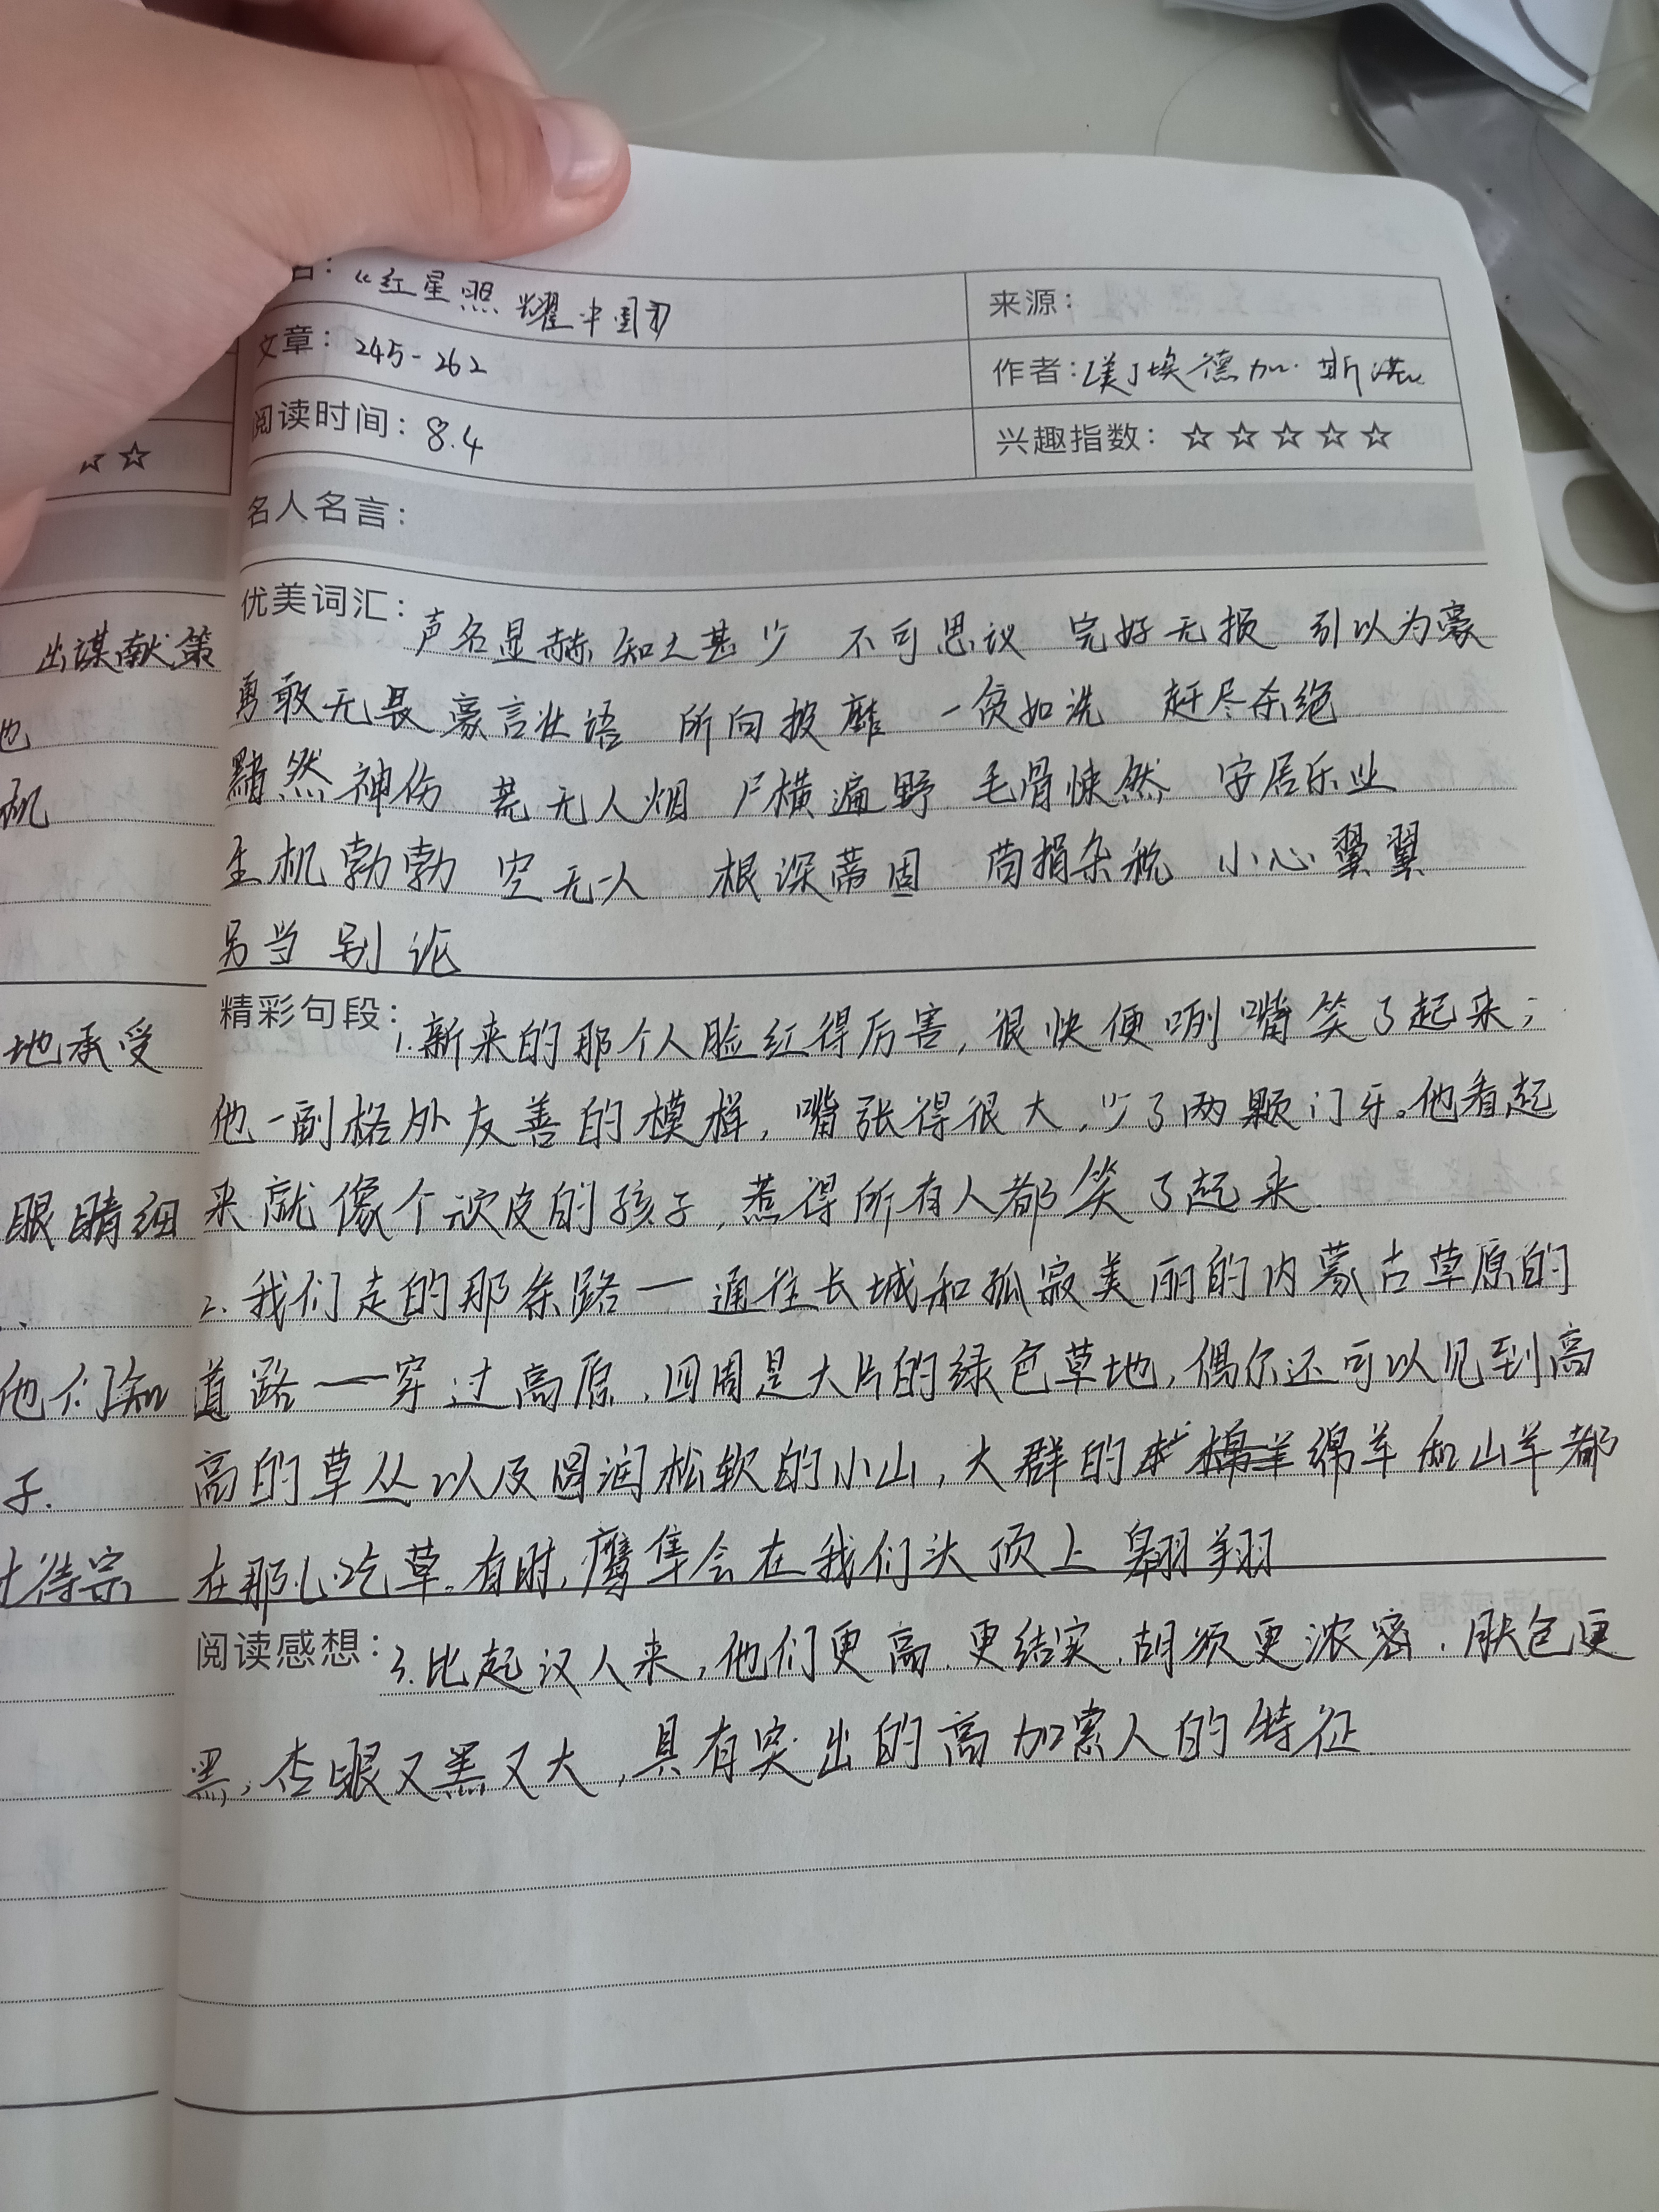 名：《红星照耀中国》
来源：
文章：245-262
作者：[美]埃德加·斯诺
阅读时间：8.4
兴趣指数：☆☆☆☆☆
名人名言：
优美词汇：声名显赫 知之甚少 不可思议 完好无损 引以为豪
勇敢无畏 豪言壮语 所向披靡 一贫如洗 赶尽杀绝
黯然神伤 荒无人烟 尸横遍野 毛骨悚然 安居乐业
生机勃勃 空无一人 根深蒂固 苛捐杂税 小心翼翼
另当别论
精彩句段：1.新来的那个人脸红得厉害，很快便咧嘴笑了起来；
他一副格外友善的模样，嘴张得很大，少了两颗门牙。他看起
来就像个顽皮的孩子，惹得所有人都笑了起来.
2.我们走的那条路一通往长城和孤寂美丽的内蒙古草原的
道路一穿过高原，四周是大片的绿色草地，偶尔还可以见到高
高的草丛以及圆润松软的小山，大群的绵羊和山羊都
在那儿吃草。有时，鹰隼会在我们头顶上翱翔
阅读感想：3.比起汉人来，他们更高、更结实、胡须更浓密、肤色更
黑，杏眼又黑又大，具有突出的高加索人的特征.
☆☆
出谋献策
他
机
地承受
眼睛细
他们知
子.
待宗